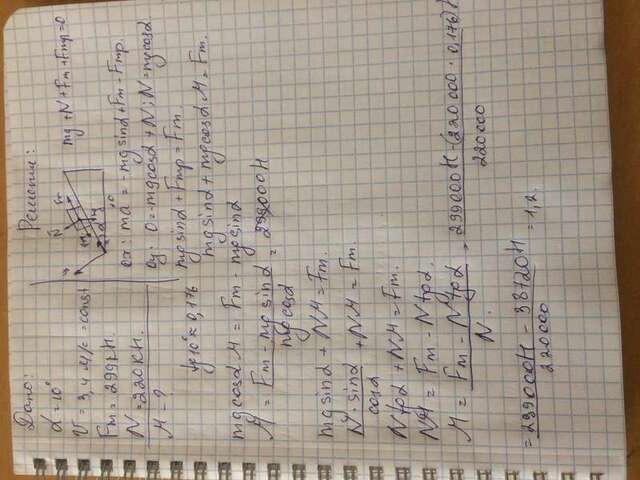 Дано:
α = 10°
v = 3,4 м/с = const
Fт = 299 кН
N = 220 кН.
μ - ?
Решение:
mg + N + Fт + Fтр = 0
ox: ma = -mgsinα + Fт - Fтр
oy: 0 = -mgcosα + N; N = mgcosα
mgsinα + Fтр = Fт.
mgsinα + mgcosα μ = Fт.
tg10° ≈ 0,176
mgcosα μ = Fт - mgsinα
μ = Fт - mgsinα / mgcosα = 299000 Н
mgsinα + Nμ = Fт.
N · sinα / cosα + Nμ = Fт.
Ntgα + Nμ = Fт.
Nμ = Fт - Ntgα.
μ = Fт - Ntgα / N = 299000 Н - (220000 · 0,176) / 220000
= 299000 Н - 38720 Н / 220000 = 1,2.